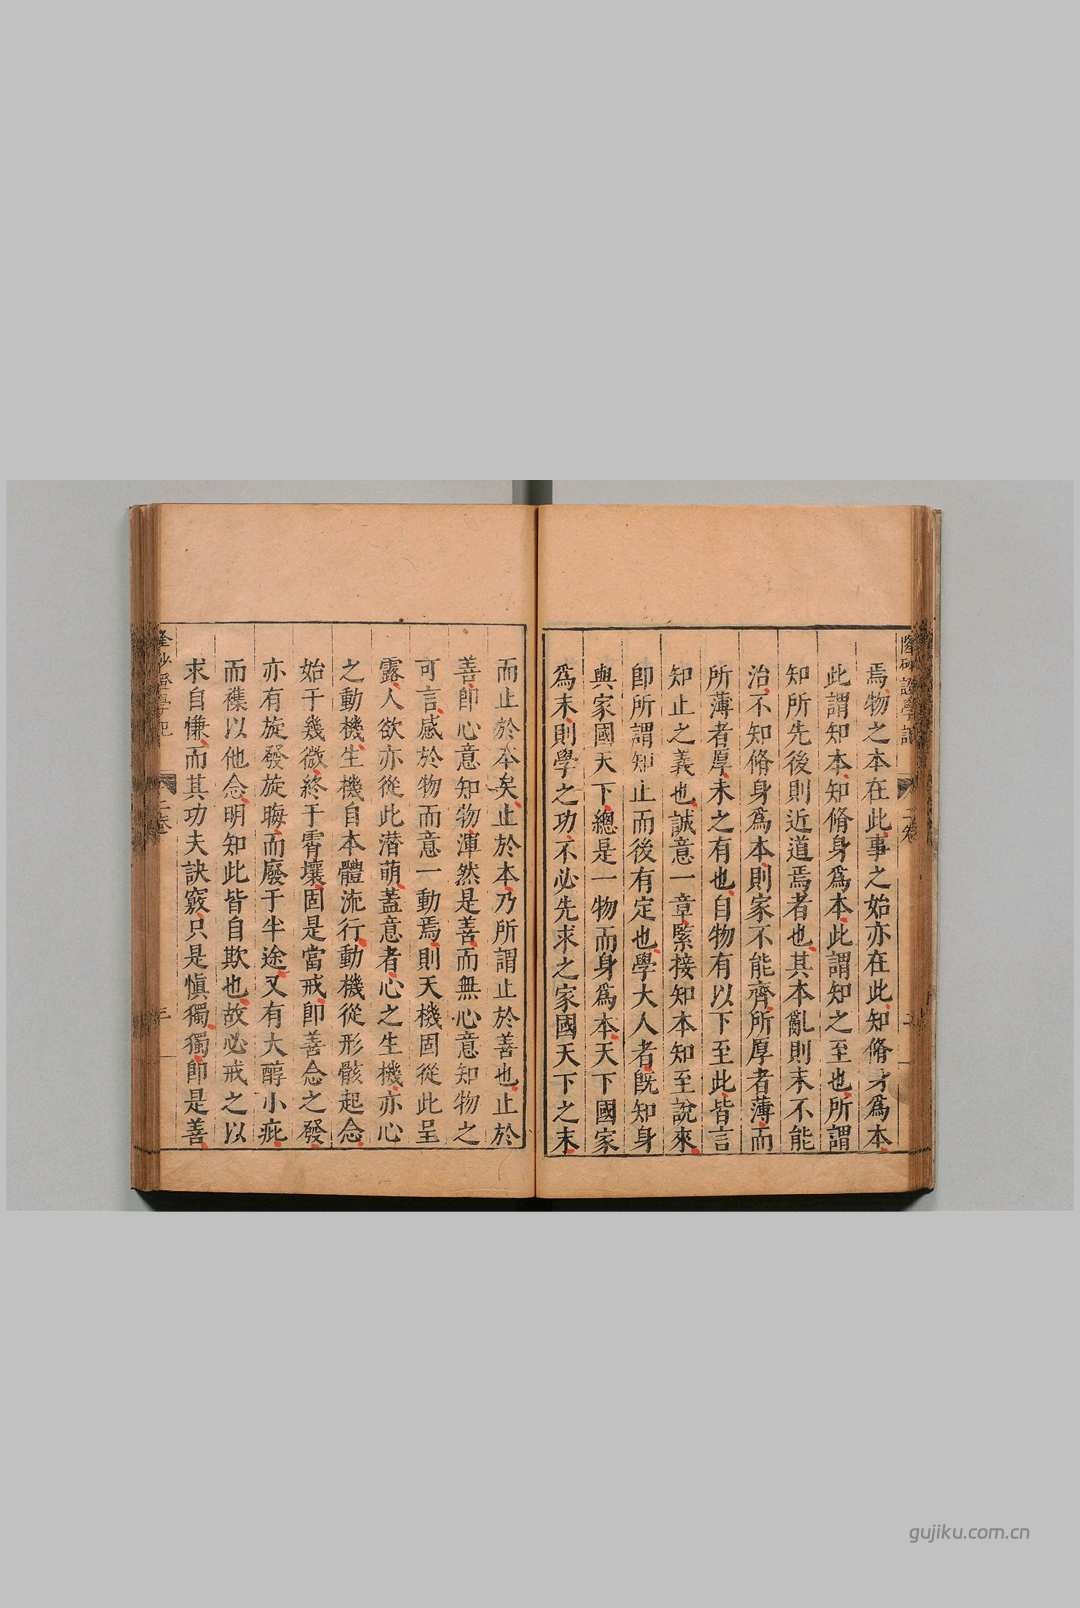 焉物之本在此事之始亦在此知脩身爲本
此謂知本知脩身爲本此謂知之至也所謂
知所先後則近道焉者也其本亂則末不能
治不知脩身爲本則家不能齊所厚者薄而
所薄者厚未之有也自物有以下至此皆言
知止之義也誠意一章緊接知本知至說來
卽所謂知止而後有定也學大人者旣知身
與家國天下總是一物而身爲本天下國家
爲末則學之功不必先求之家國天下之末
而止於本矣止於本乃所謂止於善也止於
善卽心意知物渾然是善而無心意知物之
可言感於物而意一動焉則天機固從此呈
露人欲亦從此潛萌蓋意者心之生機亦心
之動機生機自本體流行動機從形骸起念
始于幾微終于霄壤固是當戒卽善念之發
亦有旋發旋晦而廢于半途又有大醇小疵
而襍以他念明知此皆自欺也故必戒之以
求自慊而其功夫訣竅只是愼獨獨卽是善
二卷
三
gujiku.com.cn